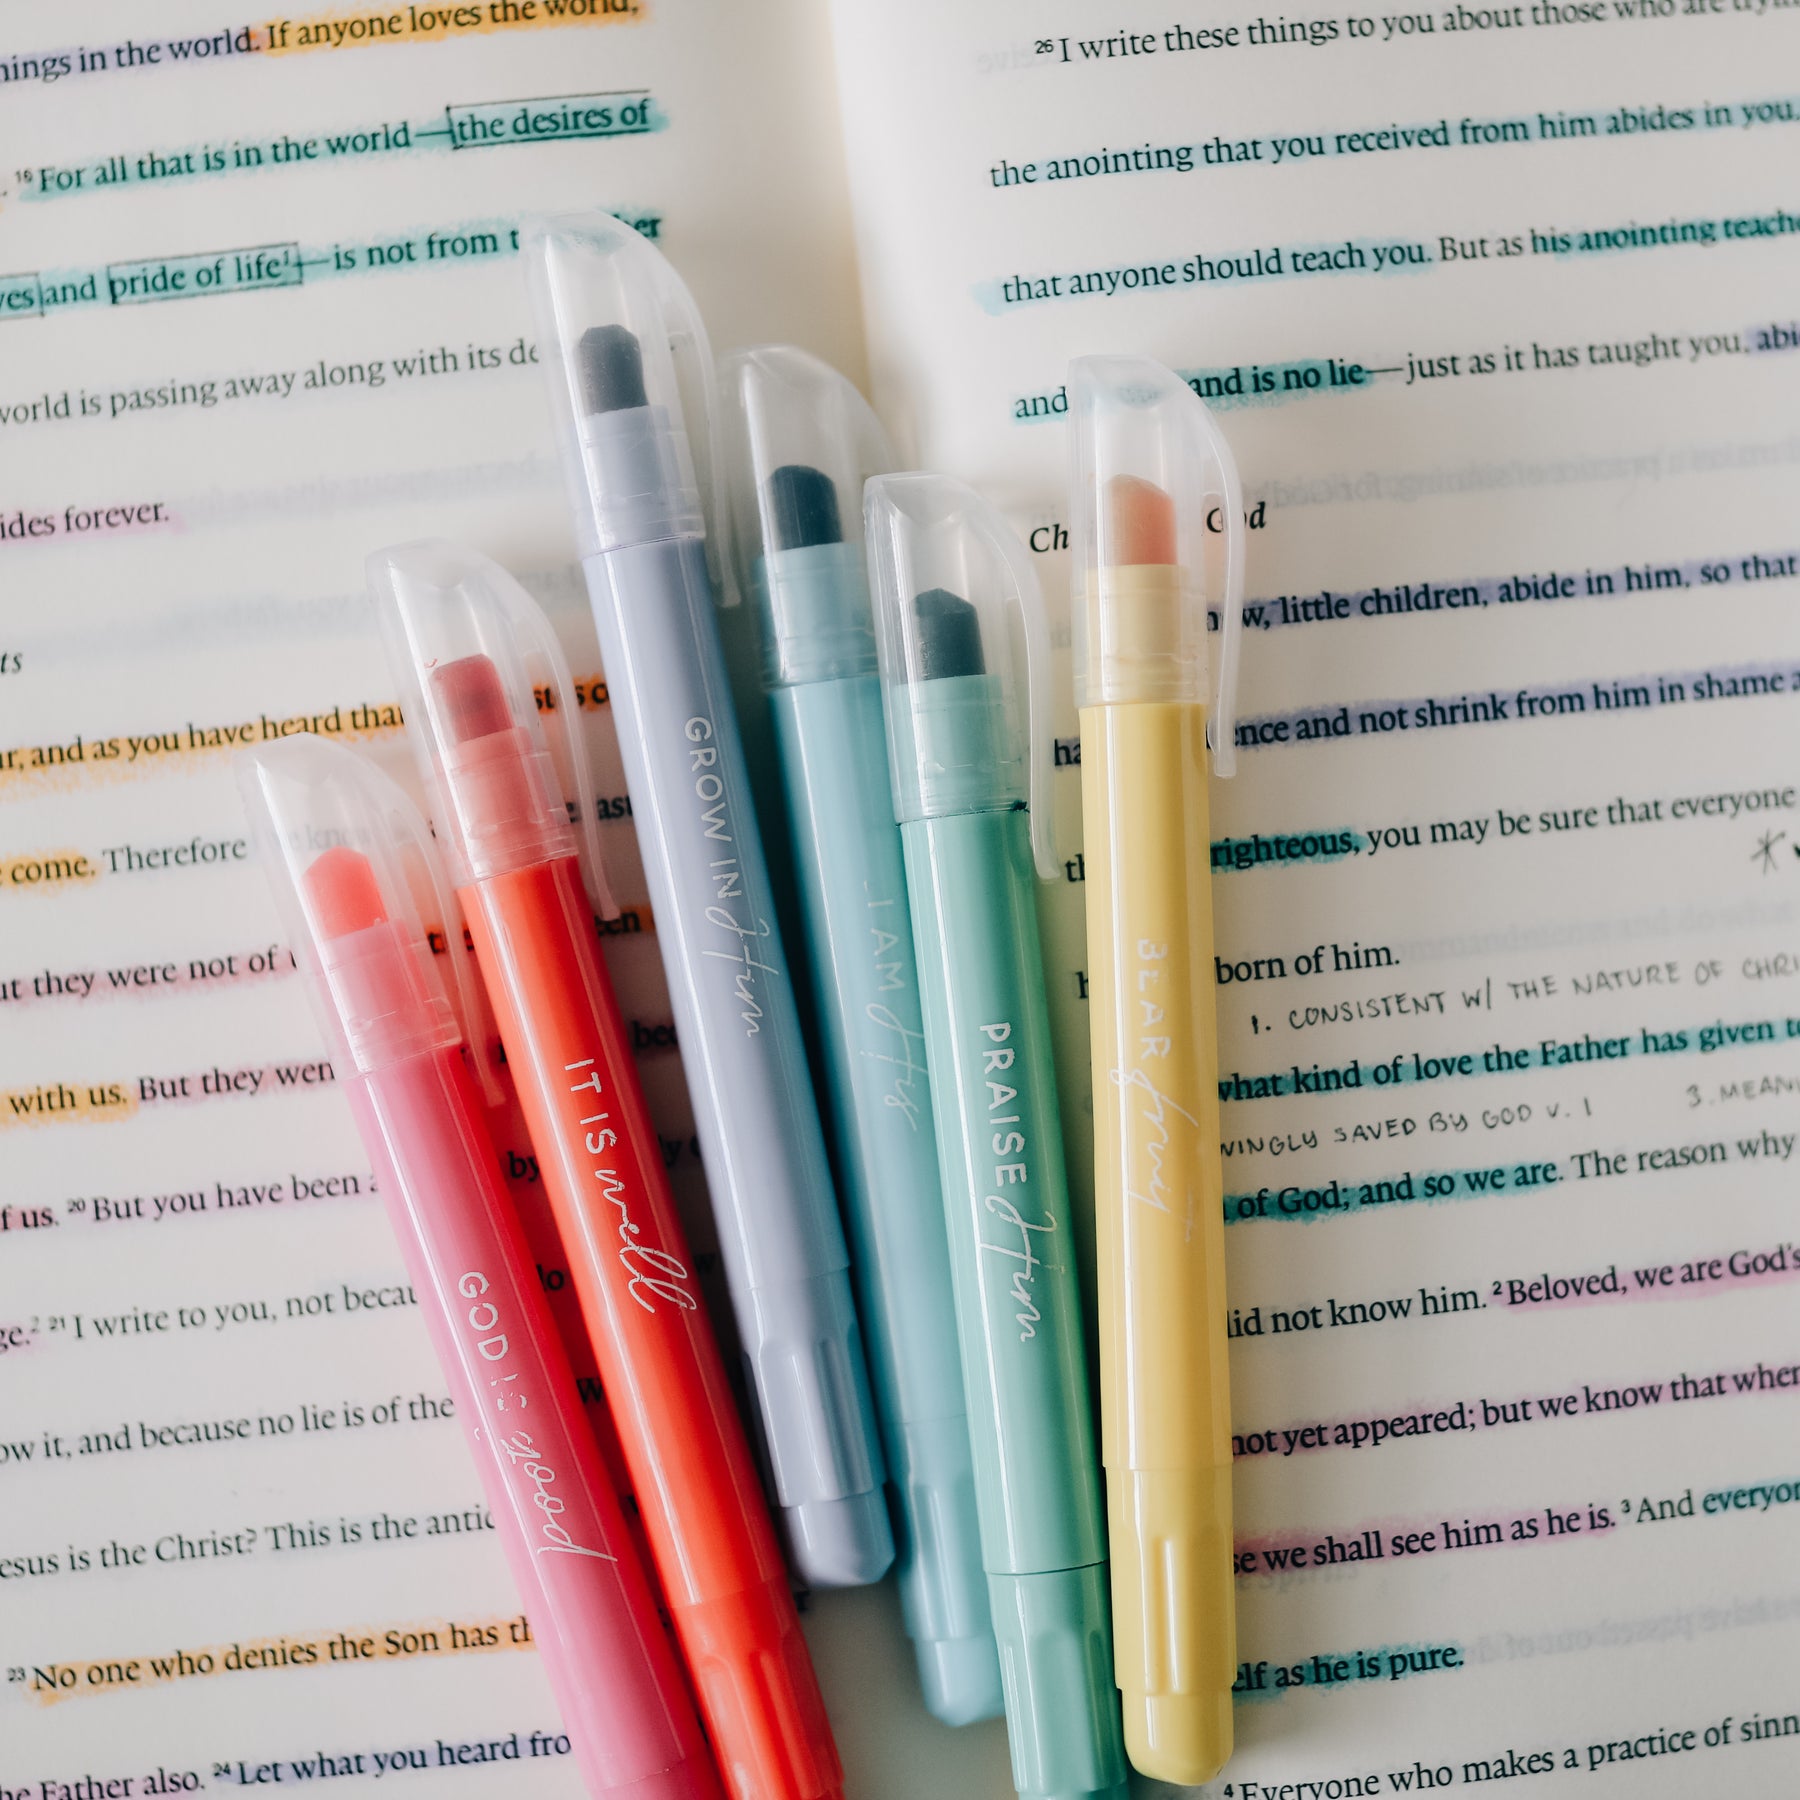 hings in the world. If anyone loves the world,
. 16 For all that is in the world—the desires of
yes and pride of life1—is not from t er
world is passing away along with its de
ides forever.
ts
ur, and as you have heard that
come. Therefore
ut they were not of
with us. But they wen
f us. 20 But you have been a by
ge.2 21 I write to you, not becau
ow it, and because no lie is of the
esus is the Christ? This is the antic
23 No one who denies the Son has th
he Father also. 24 Let what you heard fro
GOD IS good
IT IS well
GROW IN Him
I AM His
PRAISE Him
BEAR fruit
26 I write these things to you about those who are tryin
the anointing that you received from him abides in you,
that anyone should teach you. But as his anointing teache
and and is no lie—just as it has taught you, abi
Ch God
now, little children, abide in him, so that
ha ence and not shrink from him in shame a
th righteous, you may be sure that everyone
h born of him.
1. CONSISTENT W/ THE NATURE OF CHRI
what kind of love the Father has given to
VINGLY SAVED BY GOD V. 1 3. MEAN
of God; and so we are. The reason why
did not know him. 2 Beloved, we are God's
not yet appeared; but we know that when
se we shall see him as he is. 3 And everyon
elf as he is pure.
4 Everyone who makes a practice of sinn